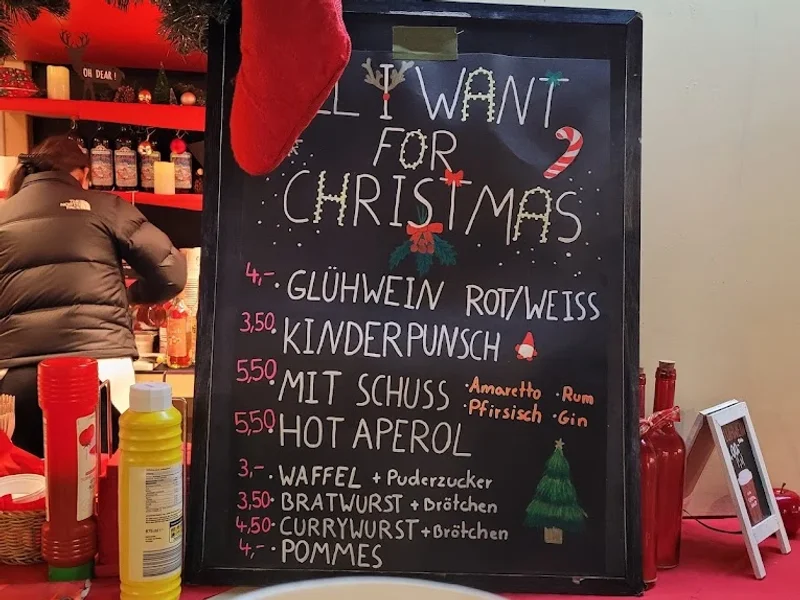 OH DEAR!
THE NORTH FACE
I WANT
FOR
CHRISTMAS
4,- · GLÜHWEIN ROT/WEISS
3,50 · KINDERPUNSCH
5,50 · MIT SCHUSS · Amaretto · Rum
· Pfirsisch · Gin
5,50 · HOT APEROL
3,- · WAFFEL + Puderzucker
3,50 · BRATWURST + Brötchen
4,50 · CURRYWURST + Brötchen
4,- · POMMES